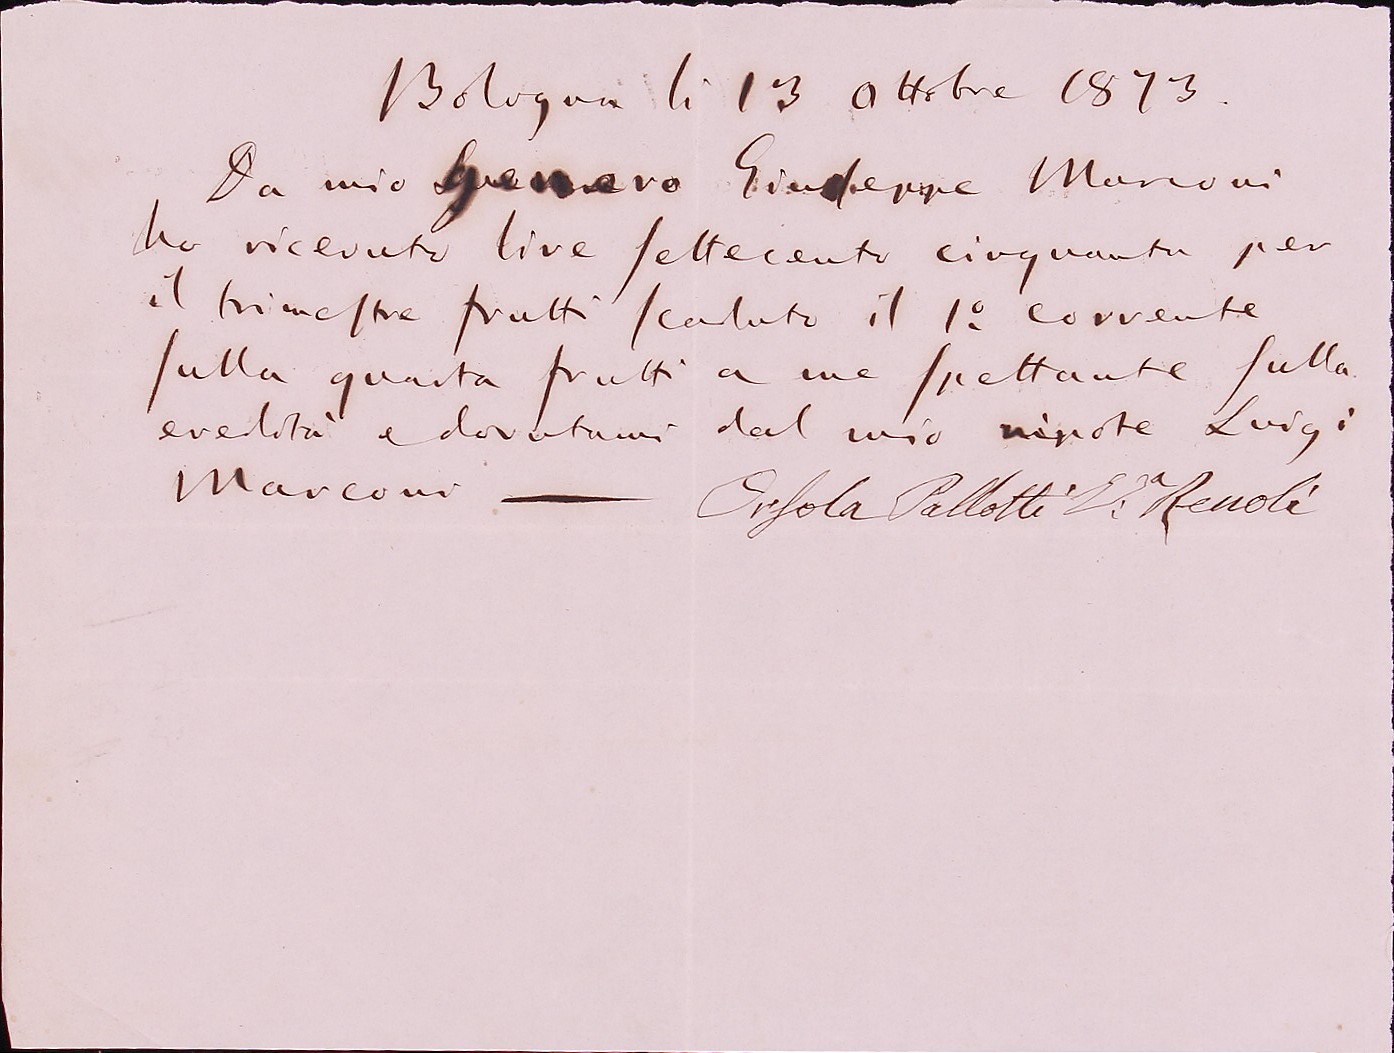 Bologna li 13 Ottobre 1873.
Da mio Genero Giuseppe Marconi
ho ricevuto lire settecento cinquanta per
il trimestre frutti scaduto il 1º corrente
sulla quarta frutti a me spettante sulla
eredità e dovutami dal mio nipote Luigi
Marconi —— Orsola Pallotti V.ª Renoli